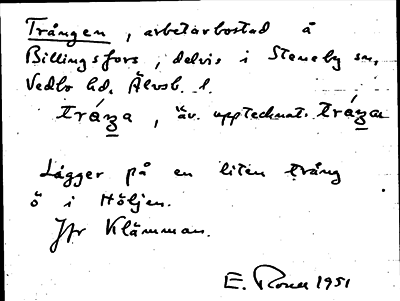 Trången, arbetarbostad å
Billingsfors, delvis i Steneby sn,
Vedbo hd. Älvsb. l.
tráŋa, äv. upptecknat. tráŋa
Lägger på en liten trång
ö i Höljen.
Jfr Klämman.
E. 1951